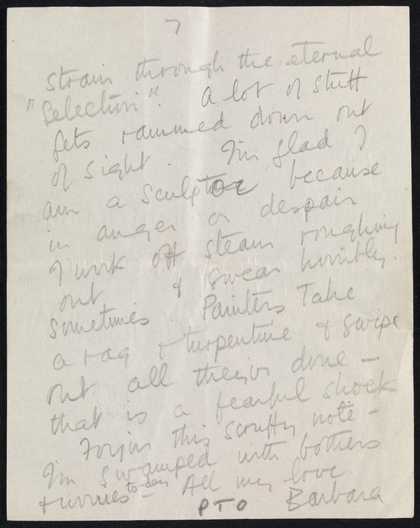 7
strain through the eternal
"Selection". A lot of stuff
gets rammed down out
of sight. I'm glad I
am a sculptor because
in anger or despair
I work off steam roughing
out & swear horribly.
Sometimes Painters Take
a rag & turpentine & swipe
out all they've done —
that is a fearful shock
Forgive this scruffy note -
I'm swamped with bothers
& worries All my love
PTO Barbara